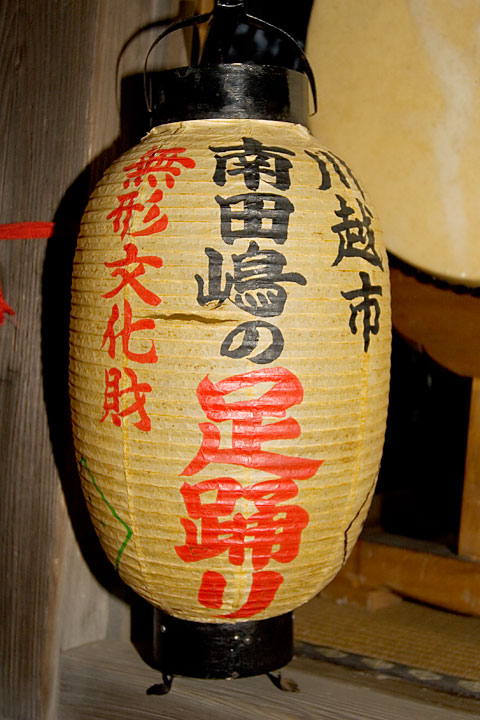 川越市
南田嶋の足踊り
無形文化財